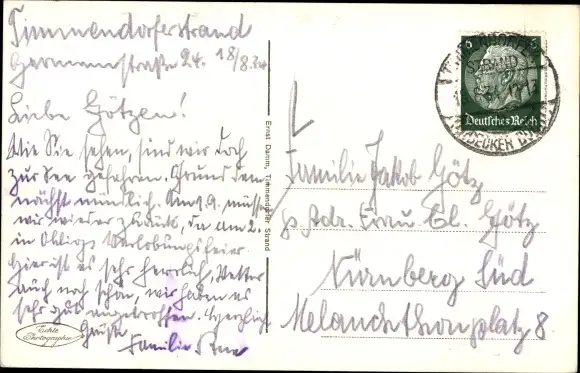 Timmendorferstrand
Germannstraße 24. 18/8.34.
Liebe Götzen!
Wie Sie sehen, sind wir doch
zur See gefahren. Grund dem-
nächst mündlich. Am 1.9. müssen
wir wieder zurück, da am 2.
in Verlobungsfeier.
Hier ist es sehr herrlich, Wetter
auch noch schön, wir haben es
sehr gut angetroffen. Herzlichst
Grüße
Familie
Echte
Photographie
Ernst Damm, Timmendorfer Strand
6
Deutsches Reich
STRAND
Familie Jakob Götz
Adr. Frau El. Götz
Nürnberg Süd
Melanchthonplatz 8